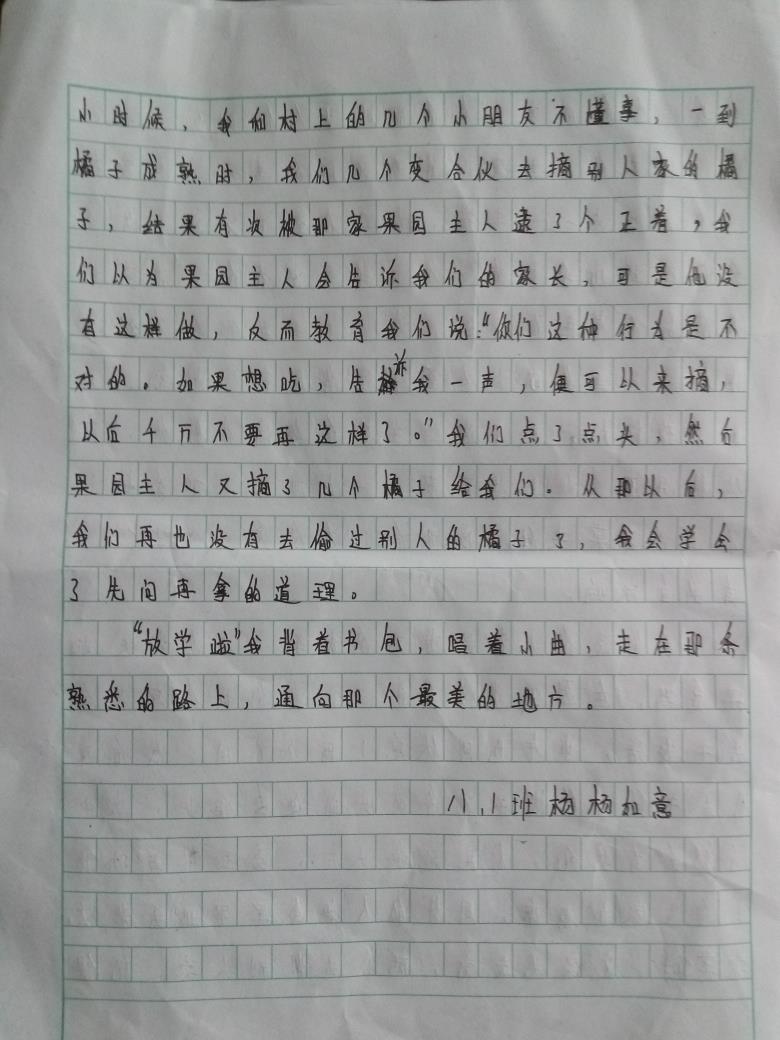 小时候，我和村上的几个小朋友不懂事，一到
橘子成熟时，我们几个变合伙去摘别人家的橘
子，结果有次被那家果园主人逮了个正着，我
们以为果园主人会告诉我们的家长，可是他没
有这样做，反而教育我们说：“你们这种行为是不
对的。如果想吃，告诉我一声，便可以来摘，
以后千万不要再这样了。”我们点了点头，然后
果园主人又摘了几个橘子给我们。从那以后，
我们再也没有去偷过别人的橘子了，我会学会
了先问再拿的道理。
“放学啦”我背着书包，唱着小曲，走在那条
熟悉的路上，通向那个最美的地方。
八.1班杨杨如意